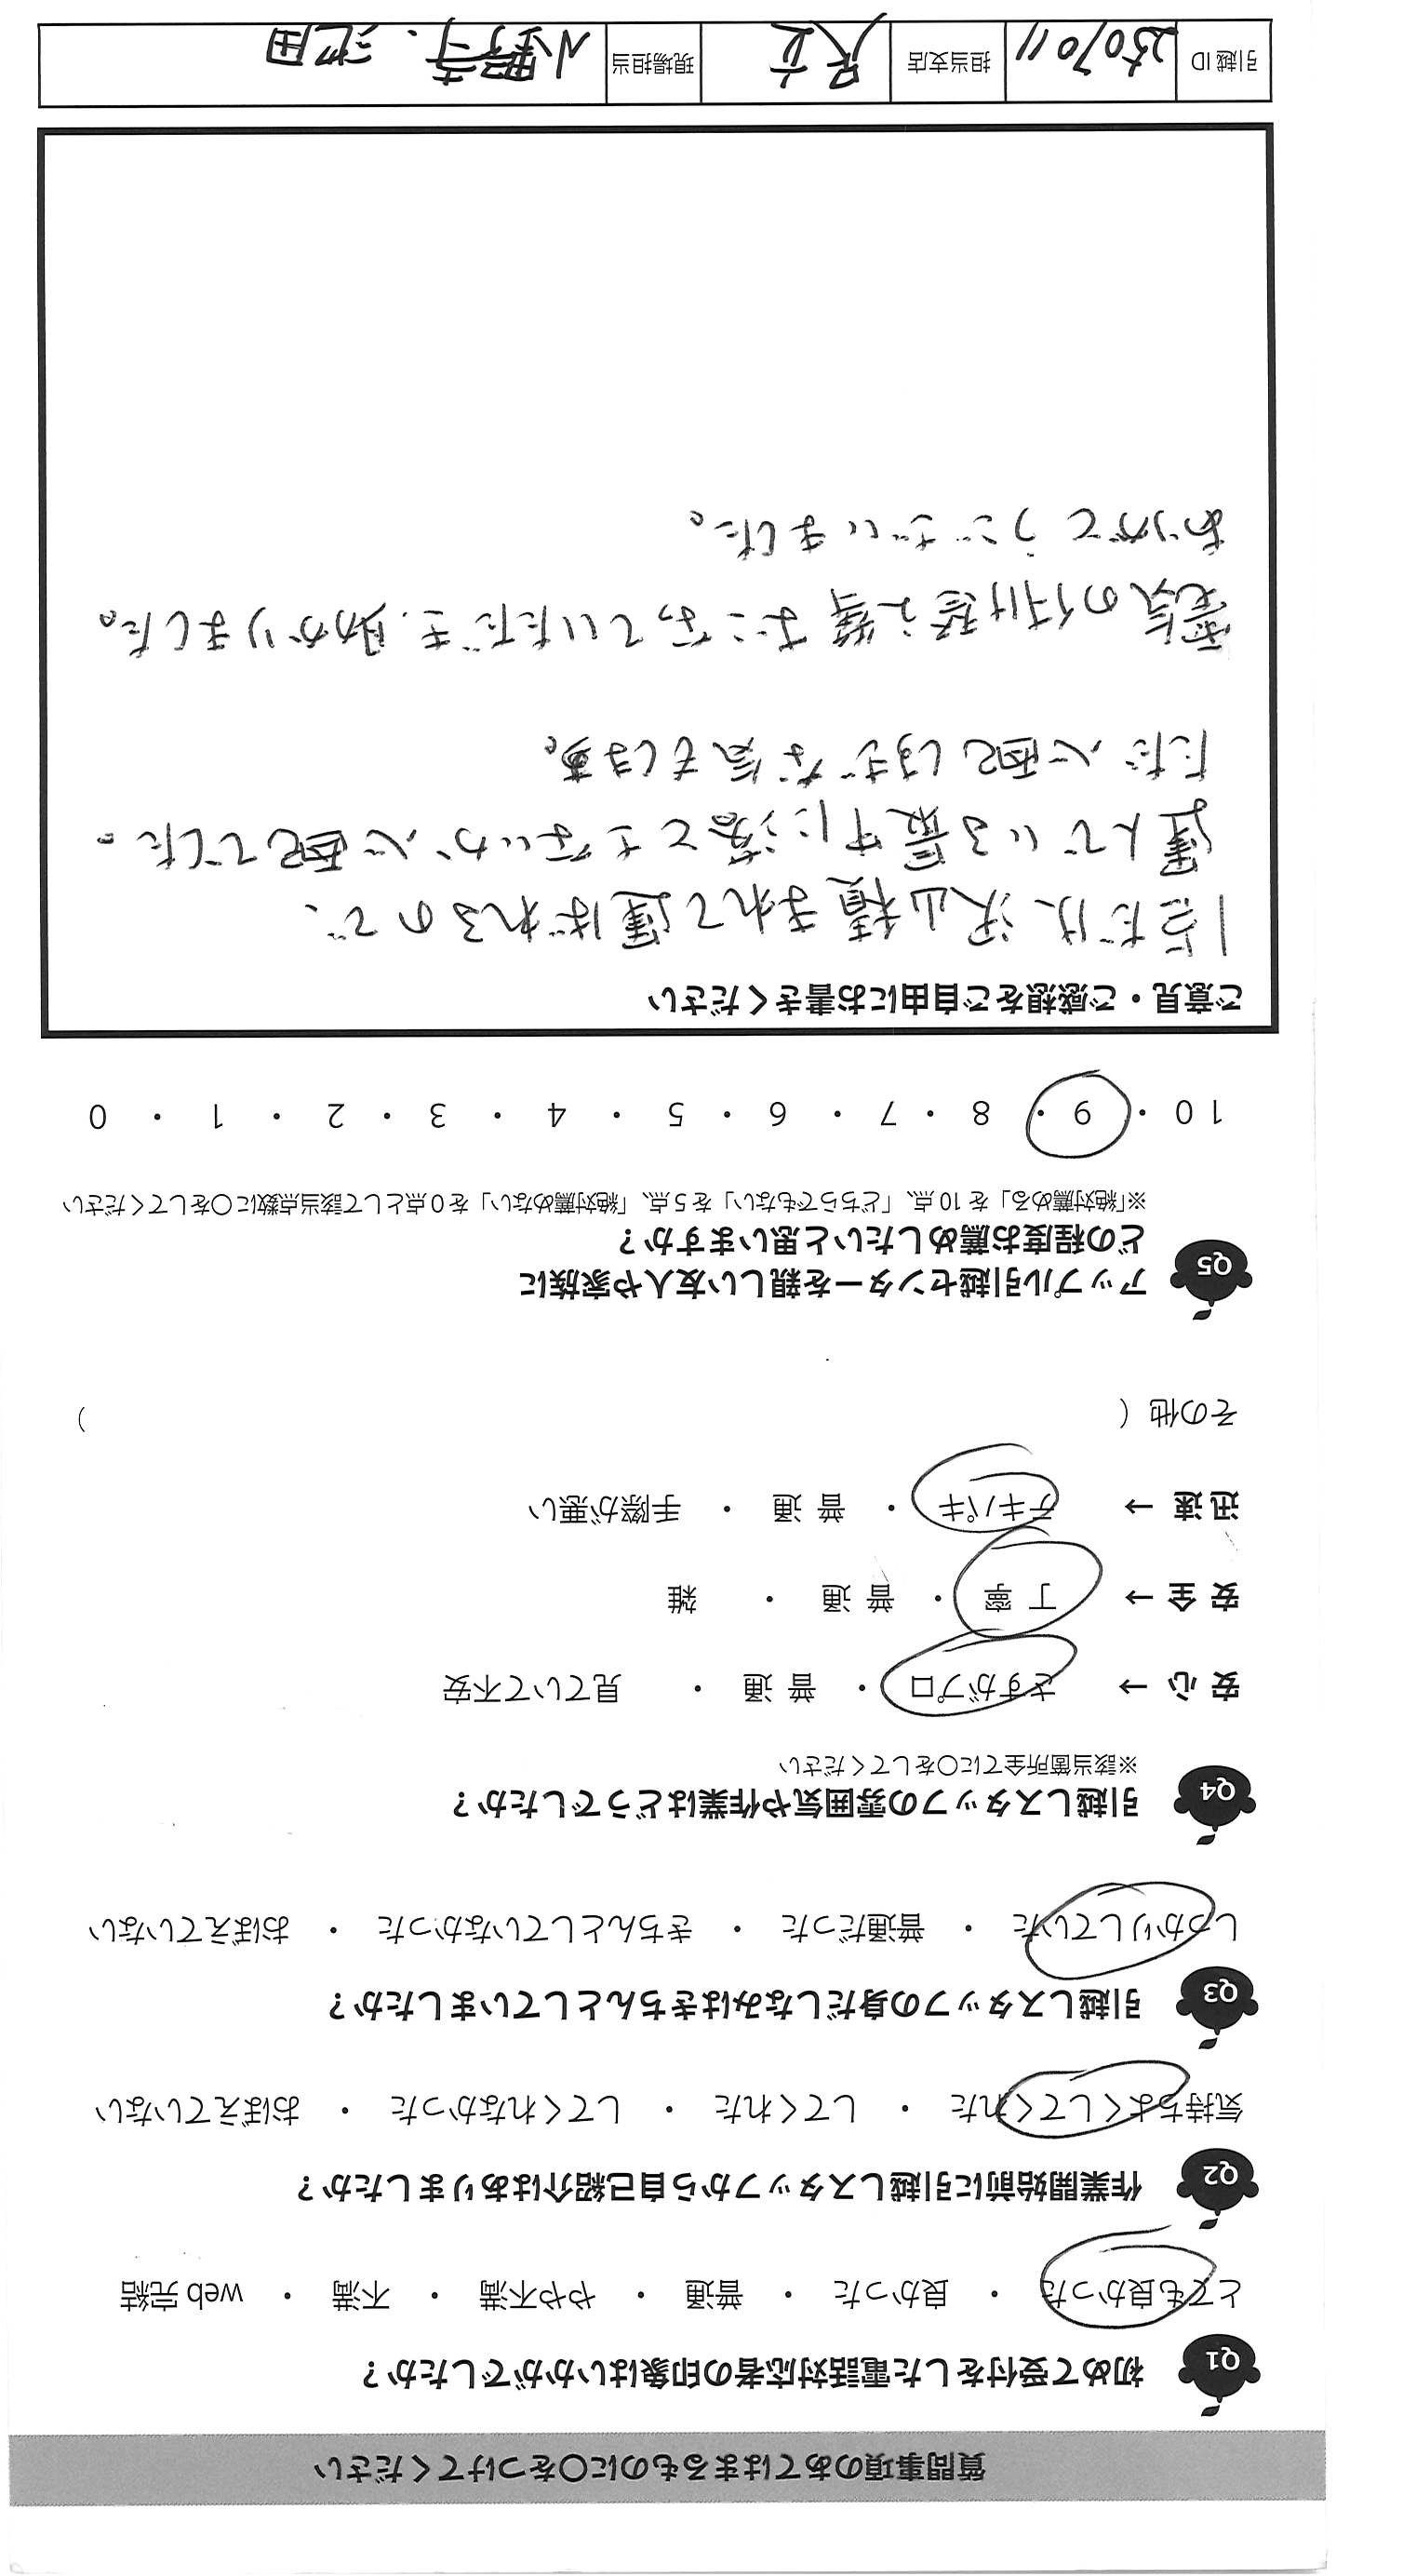 質問事項のあてはまるものに○をつけてください
Q1 初めて受付をした電話対応者の印象はいかがでしたか？
とても良かった ・ 良かった ・ 普通 ・ やや不満 ・ 不満 ・ web 完結
Q2 作業開始前に引越しスタッフから自己紹介はありましたか？
気持ちよくしてくれた ・ してくれた ・ してくれなかった ・ おぼえていない
Q3 引越しスタッフの身だしなみはきちんとしていましたか？
しっかりしていた ・ 普通だった ・ きちんとしていなかった ・ おぼえていない
Q4 引越しスタッフの雰囲気や作業はどうでしたか？
※該当箇所全てに○をしてください
安 心 → さすがプロ ・ 普 通 ・ 見ていて不安
安 全 → 丁 寧 ・ 普 通 ・ 雑
迅 速 → テキパキ ・ 普 通 ・ 手際が悪い
その他（ ）
Q5 アップル引越センターを親しい友人や家族に
どの程度お薦めしたいと思いますか？
※「絶対薦める」を 10 点、「どちらでもない」を 5 点、「絶対薦めない」を 0 点として該当点数に○をしてください
10 ・ 9 ・ 8 ・ 7 ・ 6 ・ 5 ・ 4 ・ 3 ・ 2 ・ 1 ・ 0
ご意見・ご感想をご自由にお書きください
1点だけ、沢山積まれて運ばれるので、
運んでいる最中に落とさないか心配でした。
ただ心配しすぎな気もします。
電気の付け替え等おこなっていただき、助かりました。
ありがとうございました。
引越 ID 2507011 担当支店 足立 現場担当 小野寺、池田